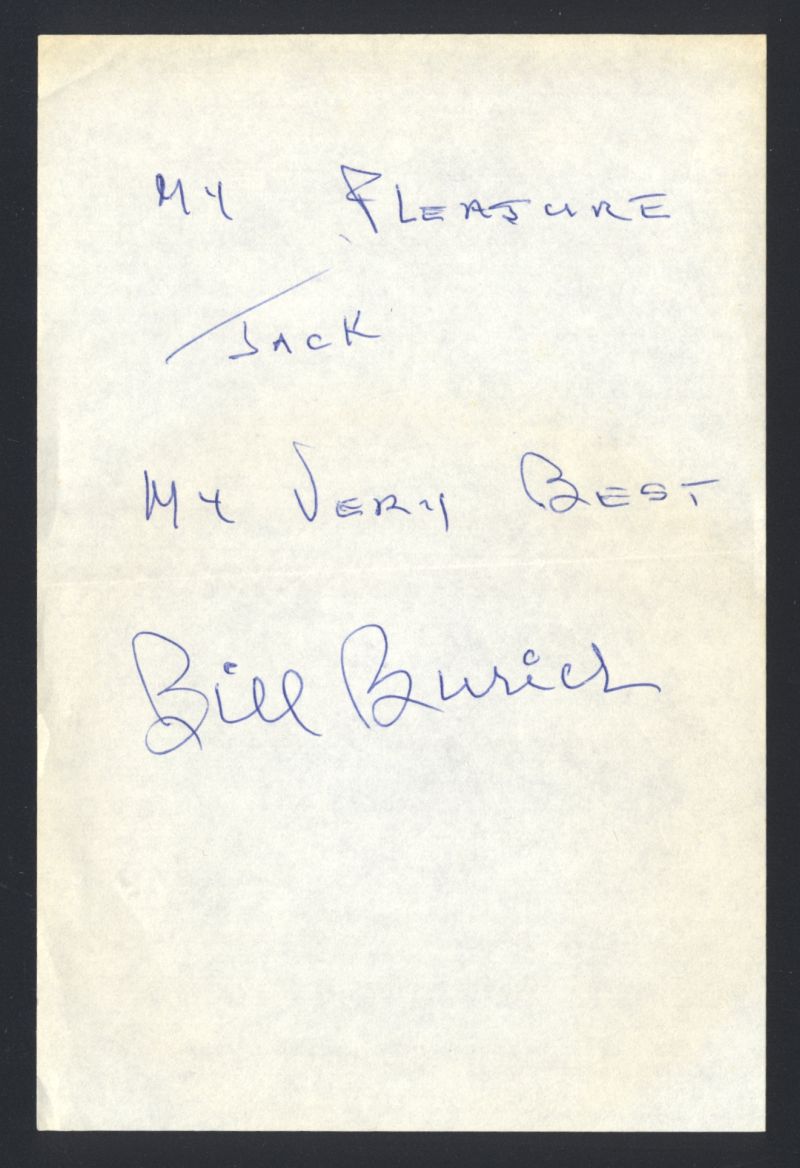 MY PLEASURE
JACK
MY VERY BEST
Bill Burich